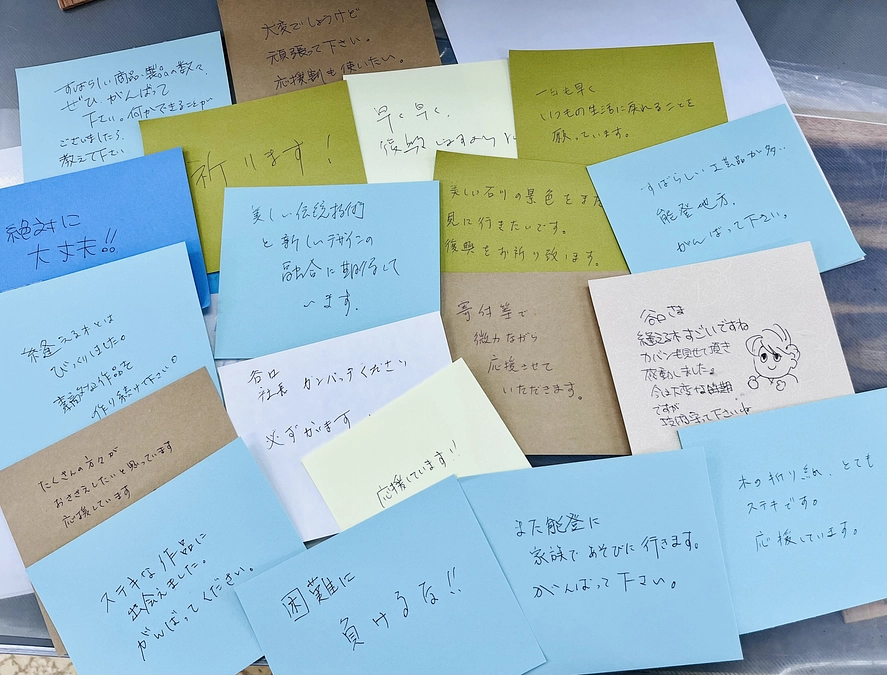 大変でしょうけど
頑張って下さい。
応援割も使いたい。
すばらしい商品、製品の数々、
ぜひ、がんばって
下さい。何かできることが
ございましたら、
教えて下さい
祈ります!
早く早く、
一日も早く
いつもの生活に戻れることを
願っています。
絶対に
大丈夫!!
美しい伝統技術
と新しいデザインの
融合に期待して
います。
美しい石川の景色をまた
見に行きたいです。
復興をお祈り致します。
すばらしい工芸品が多い
能登地方、
がんばって下さい。
縫える木とは
びっくりしました。
素敵な作品を
作り続けて下さい。
谷口
社長 ガンバッテください
必ずかいます!
寄付等で、
微力ながら
応援させて
いただきます。
谷口さま
縫える木すごいですね
カバンも見せて頂き
感動しました。
今は大変な時期
ですが
頑張って下さいね
たくさんの方々が
おささえしたいと思っています
応援しています
応援しています!!
ステキな作品に
出会えました。
がんばってください。
困難に
負けるな!!
また能登に
家族であそびに行きます。
がんばって下さい。
木の折り紙、とても
ステキです。
応援しています。